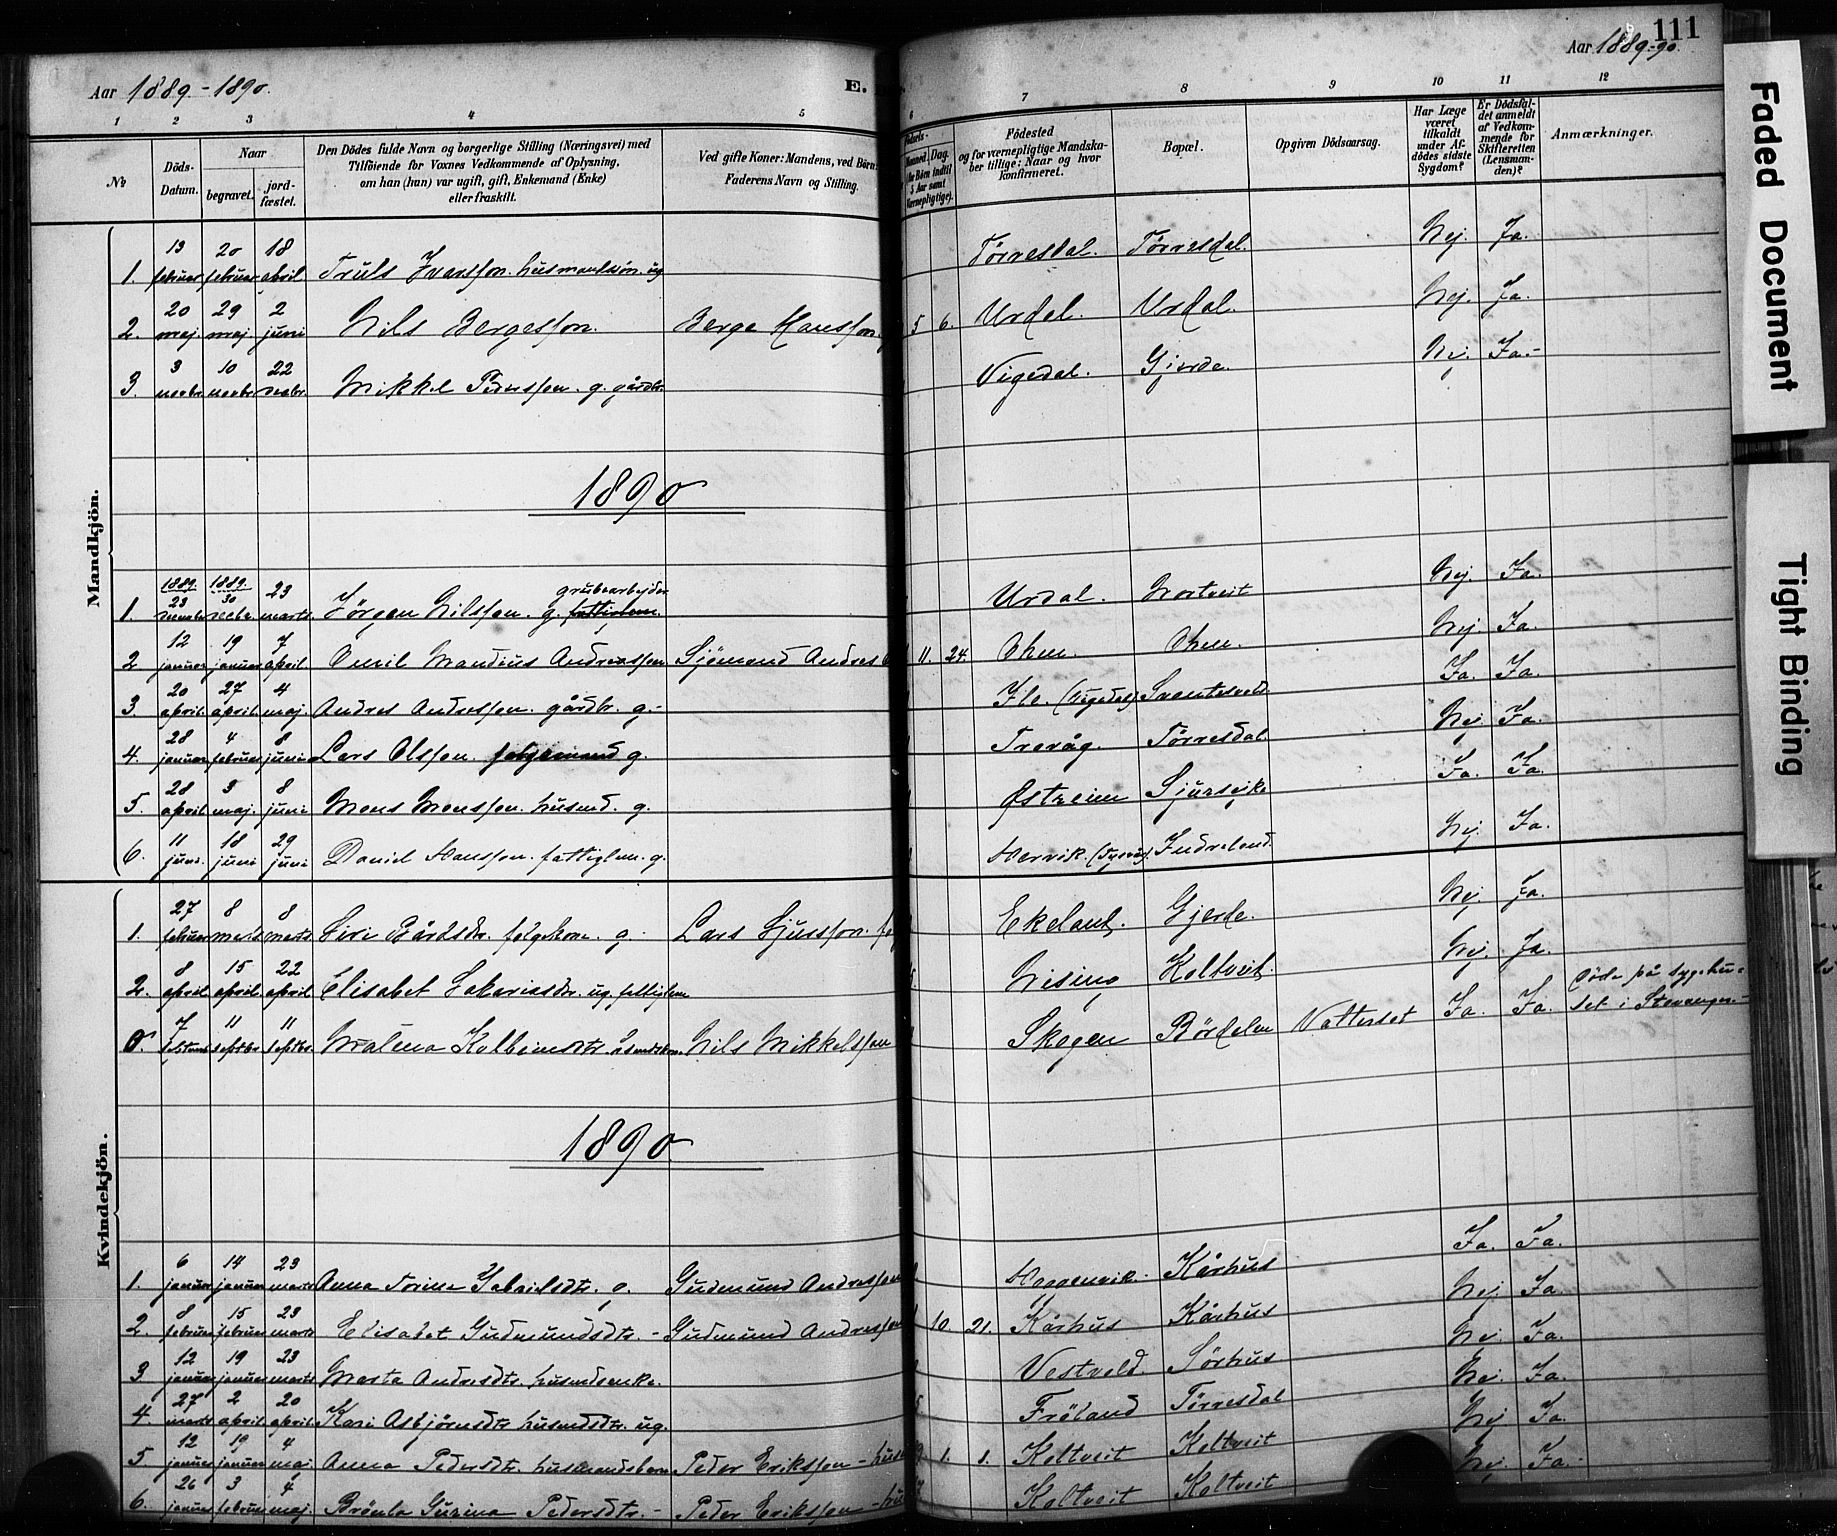 111
Aar 1889-1890.
E.
Aar 1889-90.
1 2 3 4 5 6 7 8 9 10 11 12
No
Döds-Datum.
Naar
begravet.
jordfæstet.
Den Dödes fulde Navn og borgerlige Stilling (Næringsvei) med
Tilföiende for Voxnes Vedkommende af Oplysning,
om han (hun) var ugift, gift, Enkemand (Enke)
eller fraskilt.
Ved gifte Koner: Mandens, ved Börn:
Faderens Navn og Stilling.
Maaned. Dag.
Födested
og for værnepligtige Mandskaber tillige: Naar og hvor
konfirmeret.
Bopæl.
Opgiven Dödsaarsag.
Har Læge været tilkaldt under Afdödes sidste Sygdom?
Er Dödsfaldet anmeldt af Vedkommende for Skifteretten (Lensmanden)?
Anmærkninger.
Mandkjön.
1. 13 februar 20 februar 18 april Truls Ivarsson. husmandssön. ug. Törresdal. Törresdal. Nej. Ja.
2. 20 maj. 29 maj 2 juni Nils Bergesson. Berge Hansson. 5 6. Urdal. Urdal. Nej. Ja.
3. 3 novbr. 10 novbr. 22 Mikkel Pedersson. g. gårdbr. Vigedal. Gjerde. Nej. Ja.-
1890
1. 1889. 23 1889. 30 23 marts. Jörgen Nilsson. g. grubearbejder Urdal. Nortveit Nej. Ja.
2 12 januar 19 januar 7 april Emil Mandius Andreassen Sjömand Andres 11. 24. Ohm. Ohm. Nej. Ja.
3. 20 april. 27 april. 4 maj. Andres Andersson. gårdbr. g.- Ja. Ja.
4. 28 januar 4 februar 8 juni Lars Olsson. g. Trovåg. Törresdal. Nej. Ja.
5. 28 april 3 maj. 8 juni Mons Monsson. husmd. g. Østreim Sjursvike Ja. Ja.
6. 11 juni. 18 juni 29 juni Daniel Hansson. fattiglem. g. Hervik. (Tysvær). Indreland. Nej. Ja.
Kvindekjön.
1. 27 februar 8 marts 8 marts Siri Bårdsdr. folgekone. g. Lars Sjursson. Ekeland. Gjerde. Nej. Ja.
2. 8 april 15 april. 22 april Elisabet Sakariasdr. ug. fattiglem Nising Koltveit. Nej. Ja.
7 11 septbr. 11 septbr. Malena Kolbeinsdtr. Nils Mikkelsson Skogen Bördalen Vattersot Ja. Ja. döde på sygehuset i Stavanger.-
1890.
1. 6 januar 14 januar 23 marts Anna Torina Gabrielsdtr. g. Gudmund Andresson Haggenvik. Kårhus Ja. Ja.
2. 8 februar 15 februar 23 marts Elisabet Gudmundsdtr. - Gudmund Andresson 10. 21. Kårhus Kårhus Nej. Ja.
3 12 januar 19 januar 23 marts Marta Andersdtr. husmdsenke. Vestvold. Sörhus Nej. Ja.
4 27 marts 2 april 20 april. Kari Asbjörnsdtr. husmdsdtr. ug. Fröland Törresdal Nej. Ja.
5 12 januar 19 januar 4 maj. Anna Pedersdtr. husmandsbarn Peder Eriksson - 1. 1. Koltveit Koltveit Nej Ja.
6. 26 januar 3 februar 4 maj. Brönla Gurina Pedersdtr. - Peder Eriksson - Koltveit Koltveit Nej. Ja.
Faded Document
Tight Binding